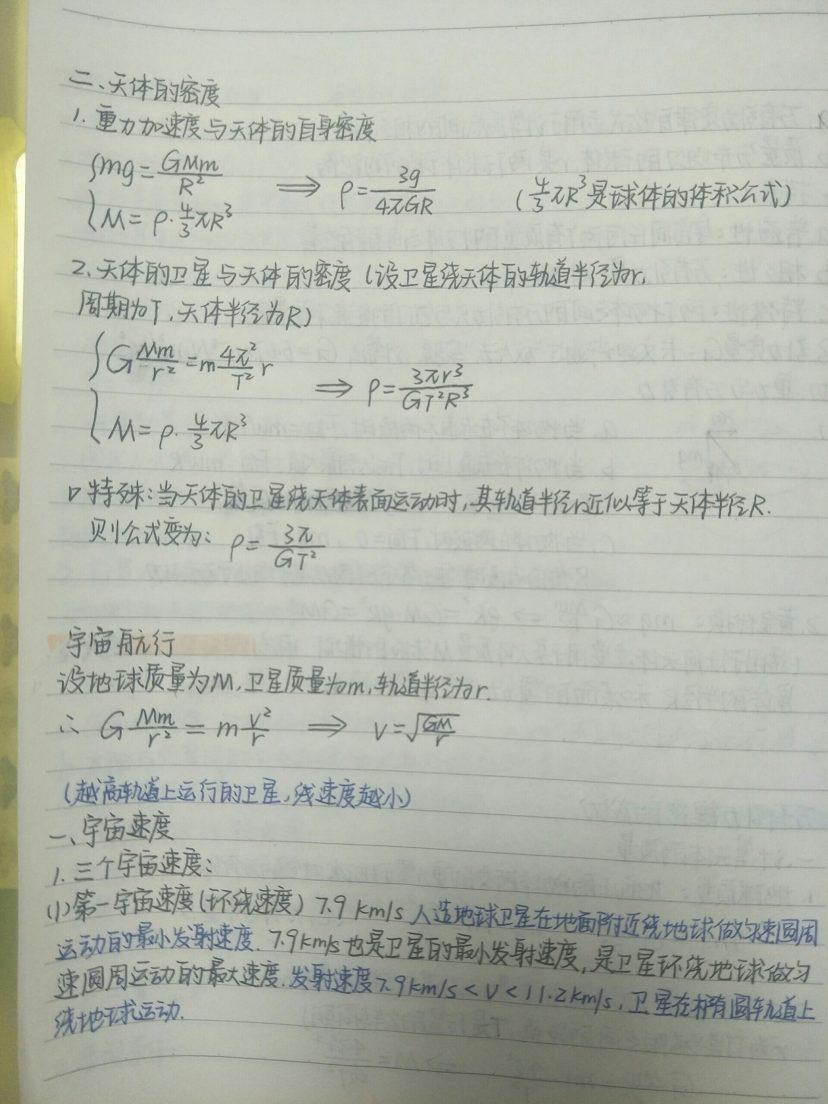 二、天体的密度
1. 重力加速度与天体的自身密度
{mg=GMm/R² ⟹ ρ=3g/4πGR (4/3πR³是球体的体积公式)
{M=ρ·4/3πR³
2、天体的卫星与天体的密度(设卫星绕天体的轨道半径为r,
周期为T,天体半径为R)
{G Mm/r²=m 4π²/T² r ⟹ ρ=3πr³/GT²R³
{M=ρ·4/3πR³
▷特殊:当天体的卫星绕天体表面运动时,其轨道半径r近似等于天体半径R.
则公式变为:ρ=3π/GT²
宇宙航行
设地球质量为M,卫星质量为m,轨道半径为r.
∴ G Mm/r² = m v²/r ⟹ v=√(GM/r)
(越高轨道上运行的卫星,线速度越小)
一、宇宙速度
1. 三个宇宙速度:
(1)第一宇宙速度(环绕速度) 7.9 km/s 人造地球卫星在地面附近绕地球做匀速圆周
运动的最小发射速度. 7.9km/s也是卫星的最小发射速度,是卫星环绕地球做匀
速圆周运动的最大速度.发射速度7.9km/s<v<11.2km/s,卫星在椭圆轨道上
绕地球运动.